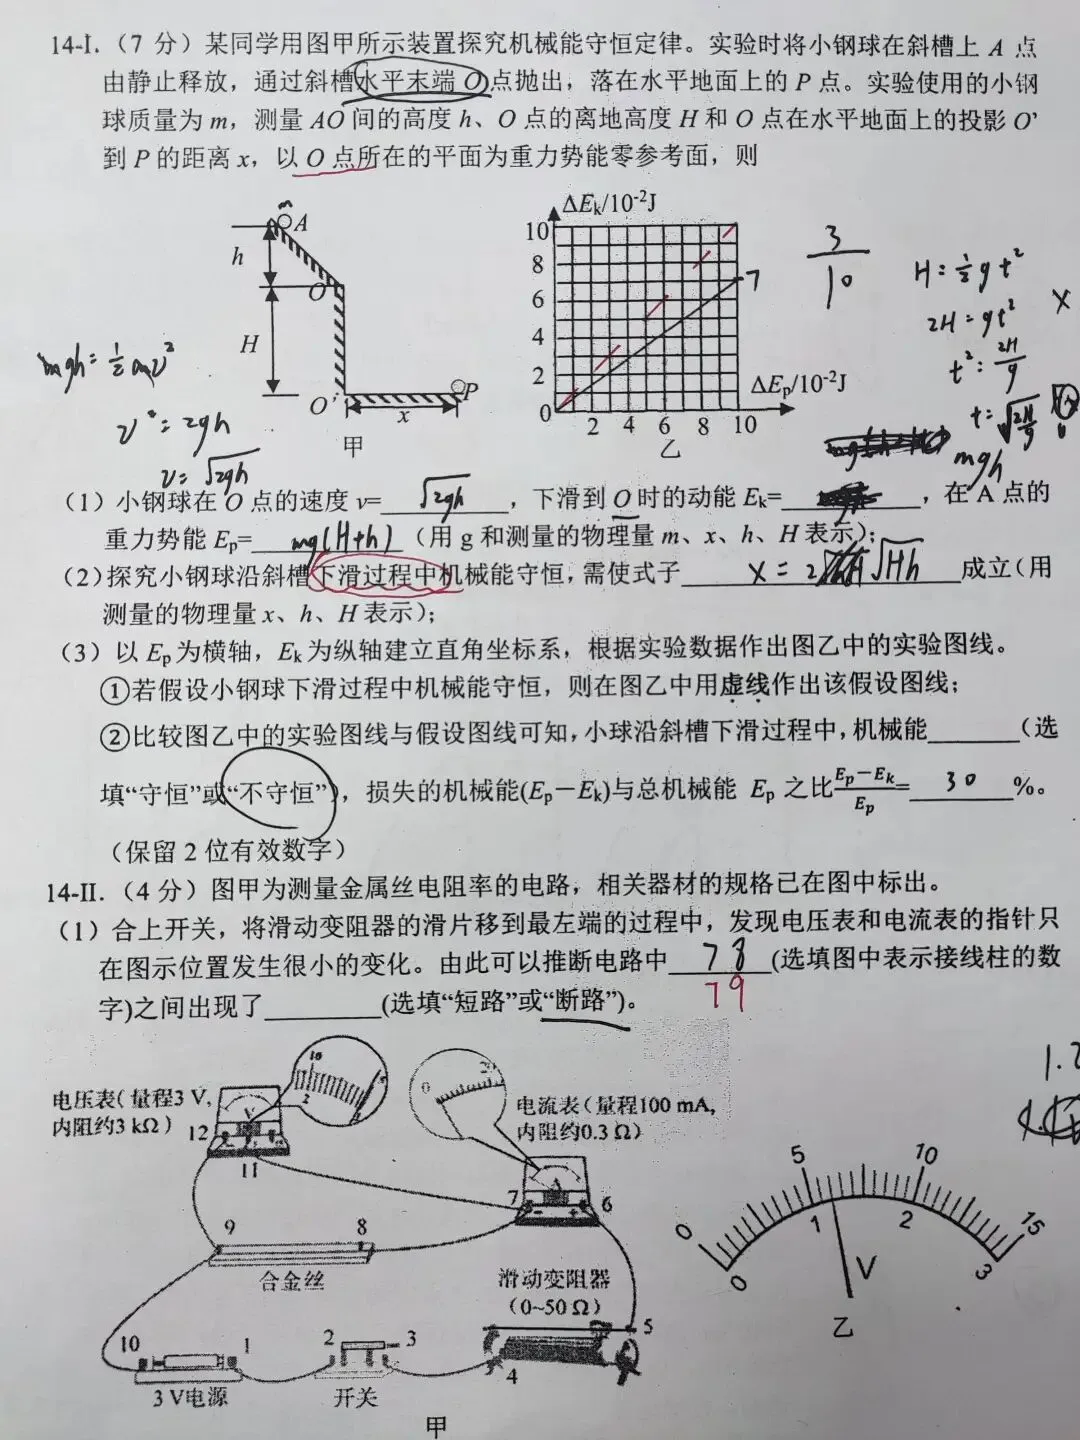 14-I.（7 分）某同学用图甲所示装置探究机械能守恒定律。实验时将小钢球在斜槽上 A 点
由静止释放，通过斜槽水平末端 O 点抛出，落在水平地面上的 P 点。实验使用的小钢
球质量为 m，测量 AO 间的高度 h、O 点的离地高度 H 和 O 点在水平地面上的投影 O’
到 P 的距离 x，以 O 点所在的平面为重力势能零参考面，则
m
A
h
O
H
O’
x
P
甲
mgh=½mv²
v²=2gh
v=√2gh
ΔEk/10⁻²J
10
8
6
4
2
0
2 4 6 8 10
7
ΔEp/10⁻²J
乙
3
10
H=½gt²
2H=gt²
t²=2H/g
t=√2H/g
x
mgh
（1）小钢球在 O 点的速度 v= √2gh ，下滑到 O 时的动能 Ek= ，在 A 点的
重力势能 Ep= mg(H+h)（用 g 和测量的物理量 m、x、h、H 表示）；
（2）探究小钢球沿斜槽下滑过程中机械能守恒，需使式子 x=2√Hh 成立（用
测量的物理量 x、h、H 表示）；
（3）以 Ep 为横轴，Ek 为纵轴建立直角坐标系，根据实验数据作出图乙中的实验图线。
①若假设小钢球下滑过程中机械能守恒，则在图乙中用虚线作出该假设图线；
②比较图乙中的实验图线与假设图线可知，小球沿斜槽下滑过程中，机械能 （选
填“守恒”或“不守恒”），损失的机械能(Ep－Ek)与总机械能 Ep 之比(Ep－Ek)/Ep= 30 %。
（保留 2 位有效数字）
14-II.（4 分）图甲为测量金属丝电阻率的电路，相关器材的规格已在图中标出。
（1）合上开关，将滑动变阻器的滑片移到最左端的过程中，发现电压表和电流表的指针只
在图示位置发生很小的变化。由此可以推断电路中 78 (选填图中表示接线柱的数
79
字)之间出现了 (选填“短路”或“断路”)。
电压表（量程3 V，
内阻约3 kΩ）
12
11
10
2
V
0
20
A
电流表（量程100 mA,
内阻约0.3 Ω）
7
6
9
8
合金丝
滑动变阻器
（0~50 Ω）
5
4
10
1
3 V电源
2
3
开关
甲
0 5 10 15
0 1 2 3
V
乙